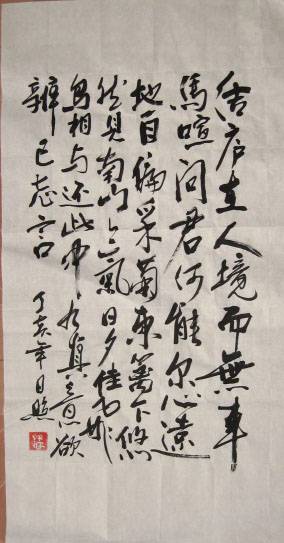 结庐在人境而無車
馬喧问君何能尔心遠
地自偏采菊東篱下悠
然見南山々氣日夕佳飛
鸟相与还此中有真意欲
辨已忘言 丁亥年日照